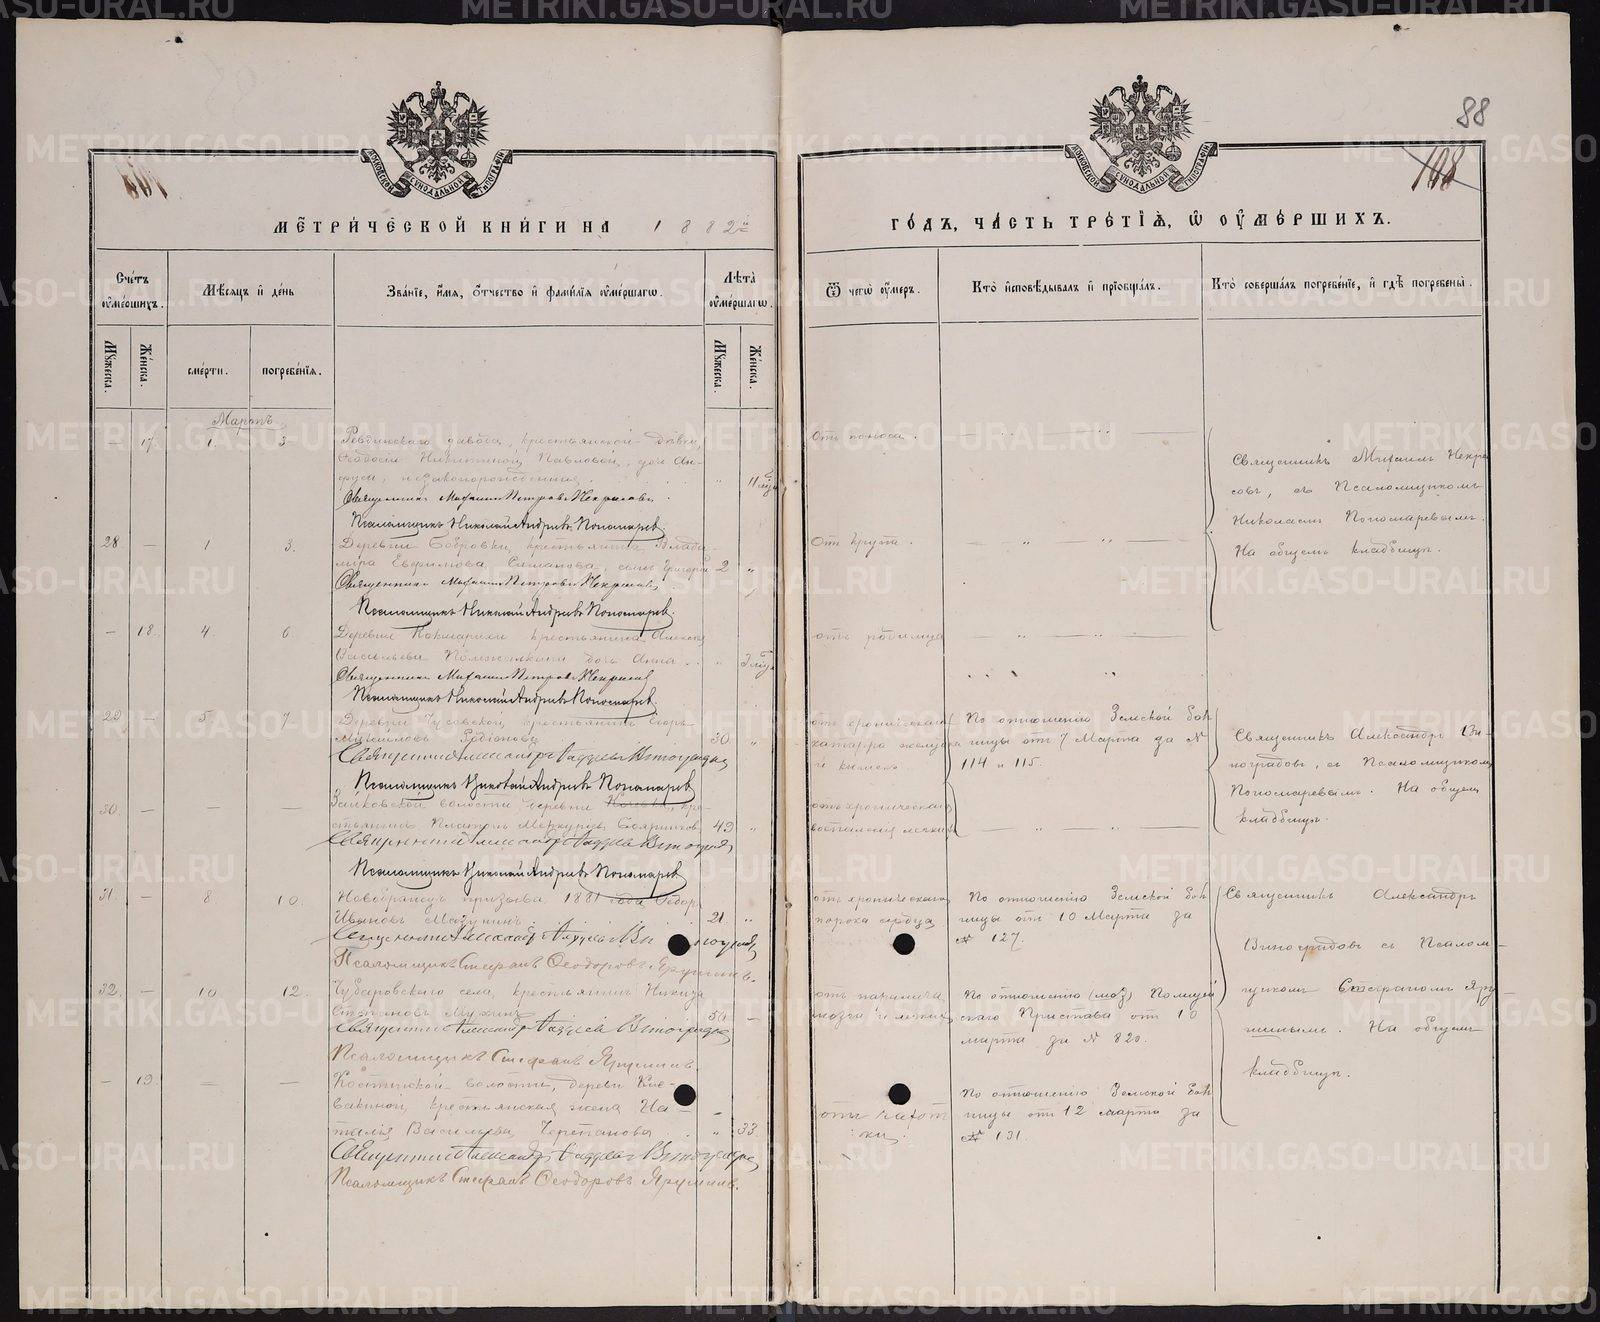 88
108
МОСКОВСКОЙ СѴНОДАЛЬНОЙ ТИПОГРАФІИ
МОСКОВСКОЙ СѴНОДАЛЬНОЙ ТИПОГРАФІИ
МЕТРИЧЕСКОЙ КНИГИ НА 1882й
ГОДЪ, ЧАСТЬ ТРЕТІѦ, Ѡ ОУМЕРШИХЪ.
Счетъ оумершихъ.
Мѣсяцъ и день
Званіе, имя, отчество и фамилія оумершагѡ.
Лѣта оумершагѡ.
Ѿ чегѡ оумеръ.
Кто исповѣдывалъ и пріобщалъ.
Кто совершалъ погребеніе, и гдѣ погребены.
Мужеска.
Женска.
смерти.
погребенія.
Мужеска.
Женска.
Мартъ
— 17. 1. 3.
Ревдинскаго завода, крестьянской дѣвки
Ѳеодосіи Никитиной Павловой, дочь Ан-
фуса, незаконнорожденная.
Священникъ Михаилъ Петровъ Некрасовъ
Псаломщикъ Николай Андреевъ Пономаревъ.
Отъ поноса.
Священникъ Михаилъ Некра
совъ, съ Псаломщикомъ
Николаемъ Пономаревымъ.
На общемъ кладбищѣ.
28 — 1 3.
Деревни Бобровки, крестьянина Влади-
міра Евфимова, сынъ Григорій 2
Священникъ Михаилъ Петровъ Некрасовъ
Псаломщикъ Николай Андреевъ Пономаревъ.
Отъ крупа.
— 18. 4. 6.
Деревни крестьянина Алексѣя
Васильева дочь Анна
Священникъ Михаилъ Петровъ Некрасовъ
Псаломщикъ Николай Андреевъ Пономаревъ.
отъ родимца
29 — 5. 7.
Деревни Чусовской, крестьянинъ Егоръ
Михайловъ Родіоновъ 30
Священникъ Александръ Виноградовъ
Псаломщикъ Николай Андреевъ Пономаревъ
отъ хроническаго
катарра желудка
и кишекъ
По отношенію Земской боль
ницы отъ 7 Марта за №
114 и 115.
Священникъ Александръ Ви-
ноградовъ, съ Псаломщикомъ
Пономаревымъ. На общемъ
кладбищѣ.
30. — — —
Зайковской волости деревни кре-
стьянинъ Платонъ Меркурьевъ 49
Священникъ Александръ Виноградовъ
Псаломщикъ Николай Андреевъ Пономаревъ
отъ хроническаго
воспаленія легкихъ
31. — 8 10.
Новобранецъ призыва 1881 года Ѳедоръ
Ивановъ Мазунинъ 21
Священникъ Александръ Виноградовъ
Псаломщикъ Стефанъ Ѳеодоровъ Ярушинъ.
отъ хроническаго
порока сердца
По отношенію Земской боль
ницы отъ 10 Марта за
№ 127.
Священникъ Александръ
Виноградовъ съ Псалом-
щикомъ Стефаномъ Яру-
шинымъ. На общемъ
кладбищѣ.
32. — 10 12.
Чубаровскаго села, крестьянинъ Никита
Степановъ Мухинъ
Священникъ Александръ Виноградовъ
Псаломщикъ Стефанъ Ярушинъ.
отъ паралича
мозга и легкихъ
По отношенію Полицей
скаго Пристава отъ 10
марта за № 820.
— 19. — —
Костинской волости, деревни
крестьянская жена На-
талія Васильева Черепанова 33.
Священникъ Александръ Виноградовъ
Псаломщикъ Стефанъ Ѳеодоровъ Ярушинъ.
отъ чахот
ки.
По отношенію Земской боль
ницы отъ 12 марта за
№ 131.
METRIKI.GASO-URAL.RU